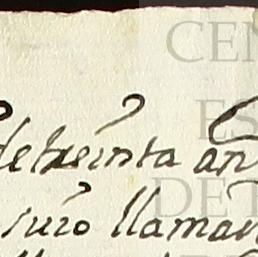 CEN
de treinta an
ES
DE T
juro llaman